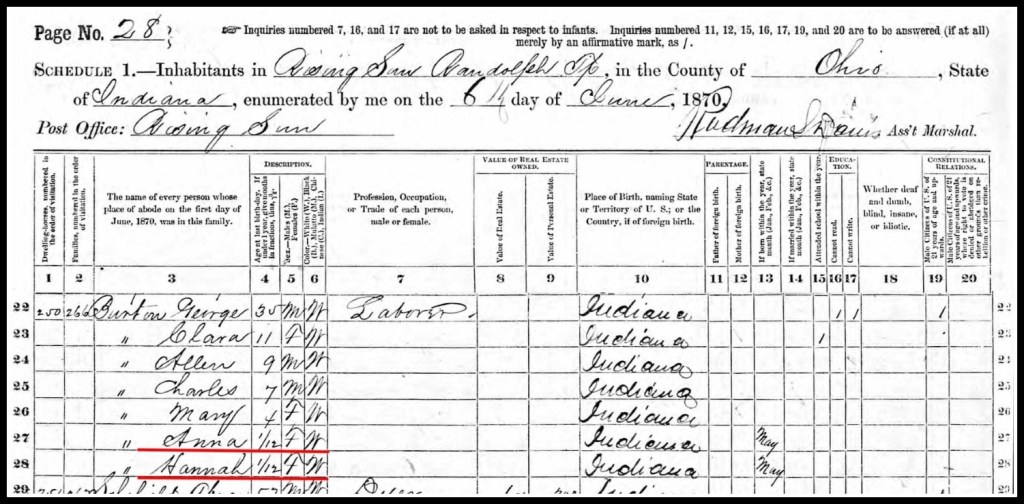 Page No. 28
☞ Inquiries numbered 7, 16, and 17 are not to be asked in respect to infants. Inquiries numbered 11, 12, 15, 16, 17, 19, and 20 are to be answered (if at all)
merely by an affirmative mark, as /.
SCHEDULE 1.—Inhabitants in Rising Sun Randolph Tp, in the County of Ohio, State
of Indiana, enumerated by me on the 6th day of June, 1870.
Post Office: Rising Sun
Rodman Davis Ass't Marshal.
Dwelling-houses, numbered in the order of visitation.
Families, numbered in the order of visitation.
The name of every person whose place of abode on the first day of June, 1870, was in this family.
DESCRIPTION.
Age at last birth-day. If under 1 year, give months in fractions, thus, 3/12
Sex.—Males (M.), Females (F.)
Color.—White (W.), Black (B.), Mulatto (M.), Chinese (C.), Indian (I.)
Profession, Occupation, or Trade of each person, male or female.
VALUE OF REAL ESTATE OWNED.
Value of Real Estate.
Value of Personal Estate.
Place of Birth, naming State or Territory of U. S.; or the Country, if of foreign birth.
PARENTAGE.
Father of foreign birth.
Mother of foreign birth.
If born within the year, state month (Jan., Feb., &c.)
If married within the year, state month (Jan., Feb., &c.)
EDUCATION.
Attended school within the year.
Cannot read.
Cannot write.
Whether deaf and dumb, blind, insane, or idiotic.
CONSTITUTIONAL RELATIONS.
Male Citizens of U. S. of 21 years of age and upwards.
Male Citizens of U. S. of 21 years of age and upwards, whose right to vote is denied or abridged on other grounds than rebellion or other crime.
1 2 3 4 5 6 7 8 9 10 11 12 13 14 15 16 17 18 19 20
22 250 266 Burton George 35 M W Laborer Indiana 1 1 1 22
23 " Clara 11 F W Indiana 1 23
24 " Allen 9 M W Indiana 24
25 " Charles 7 M W Indiana 25
26 " Mary 4 F W Indiana 26
27 " Anna 1/12 F W Indiana May 27
28 " Hannah 1/12 F W Indiana May 28